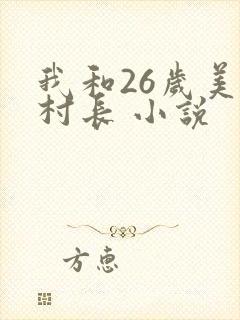 我和26歲美
村長 小說
方惠